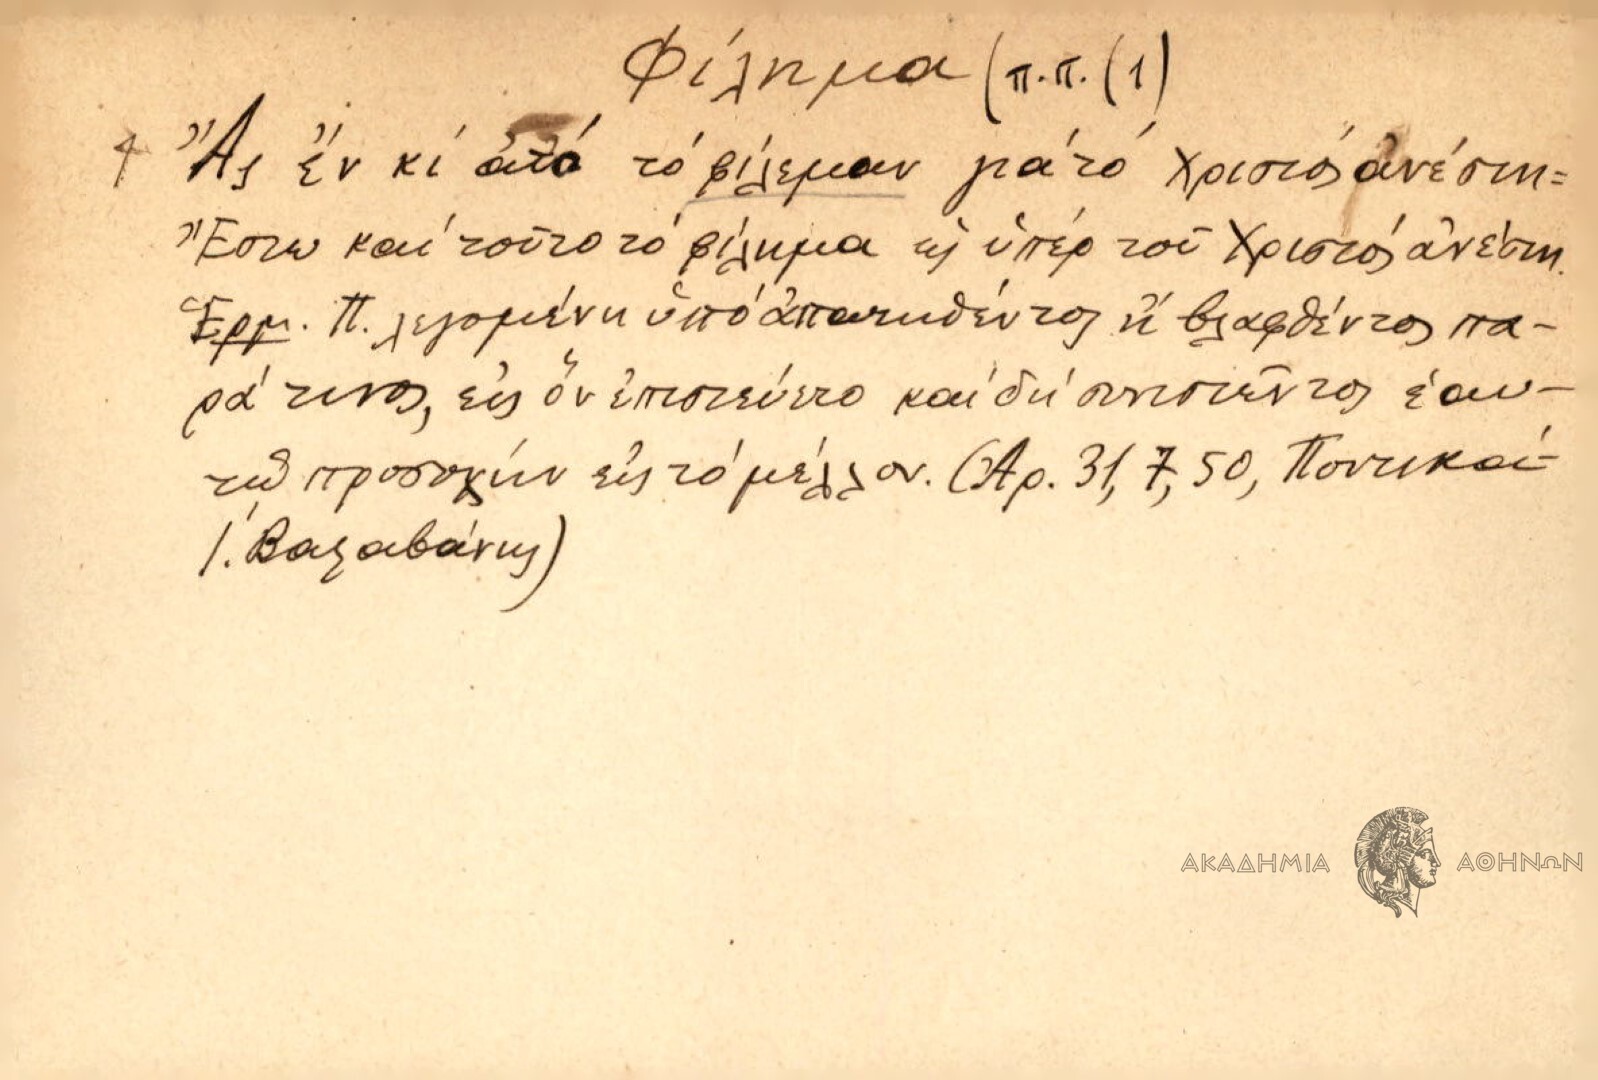 Φίλημα (π.π. (1)
Ἄς ἔν κί ἀτό τό φίλεμαν γιά τό Χριστός ἀνέστη=
Ἔστω καί τοῦτο τό φίλημα ὡς ὑπέρ τοῦ Χριστός ἀνέστη.
Ἑρμ. Π. λεγομένη ὑπό ἀπατηθέντος ἤ βλαφθέντος πα-
ρά τινος, εἰς ὅν ἐπιστεύετο καί δή συνιστῶντος ἑαυ-
τῷ προσοχήν εἰς τό μέλλον. (Ἀρ. 31, 7, 50, Ποντικαί-
Ι.
ΑΚΑΔΗΜΙΑ ΑΘΗΝΩΝ